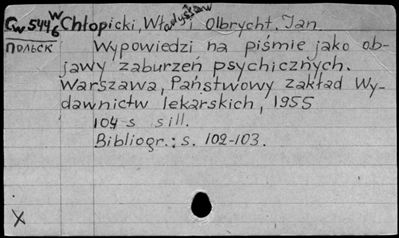 Cw544 W/6 Chłopicki, Władysław, Olbrycht, Jan
Польск Wypowiedzi na piśmie jako ob-
jawy zaburzeń psychicznych.
Warszawa, Państwowy zakład Wy-
dawnictw lekarskich, 1955
104 s sill.
Bibliogr.: s. 102-103.
X